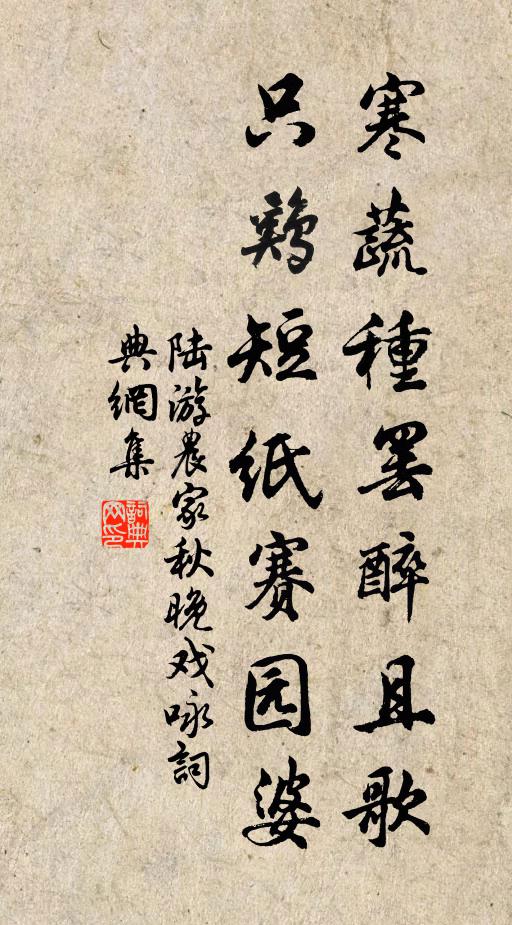 寒蔬種罢醉且歌
只鷄短紙賽园婆
陆游農家秋晚戏咏詞
典網集
詞典网印